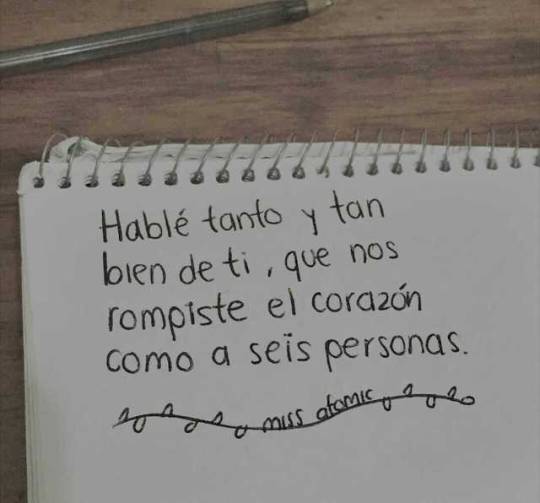 Hablé tanto y tan
bien de ti, que nos
rompiste el corazón
como a seis personas.
miss atomic